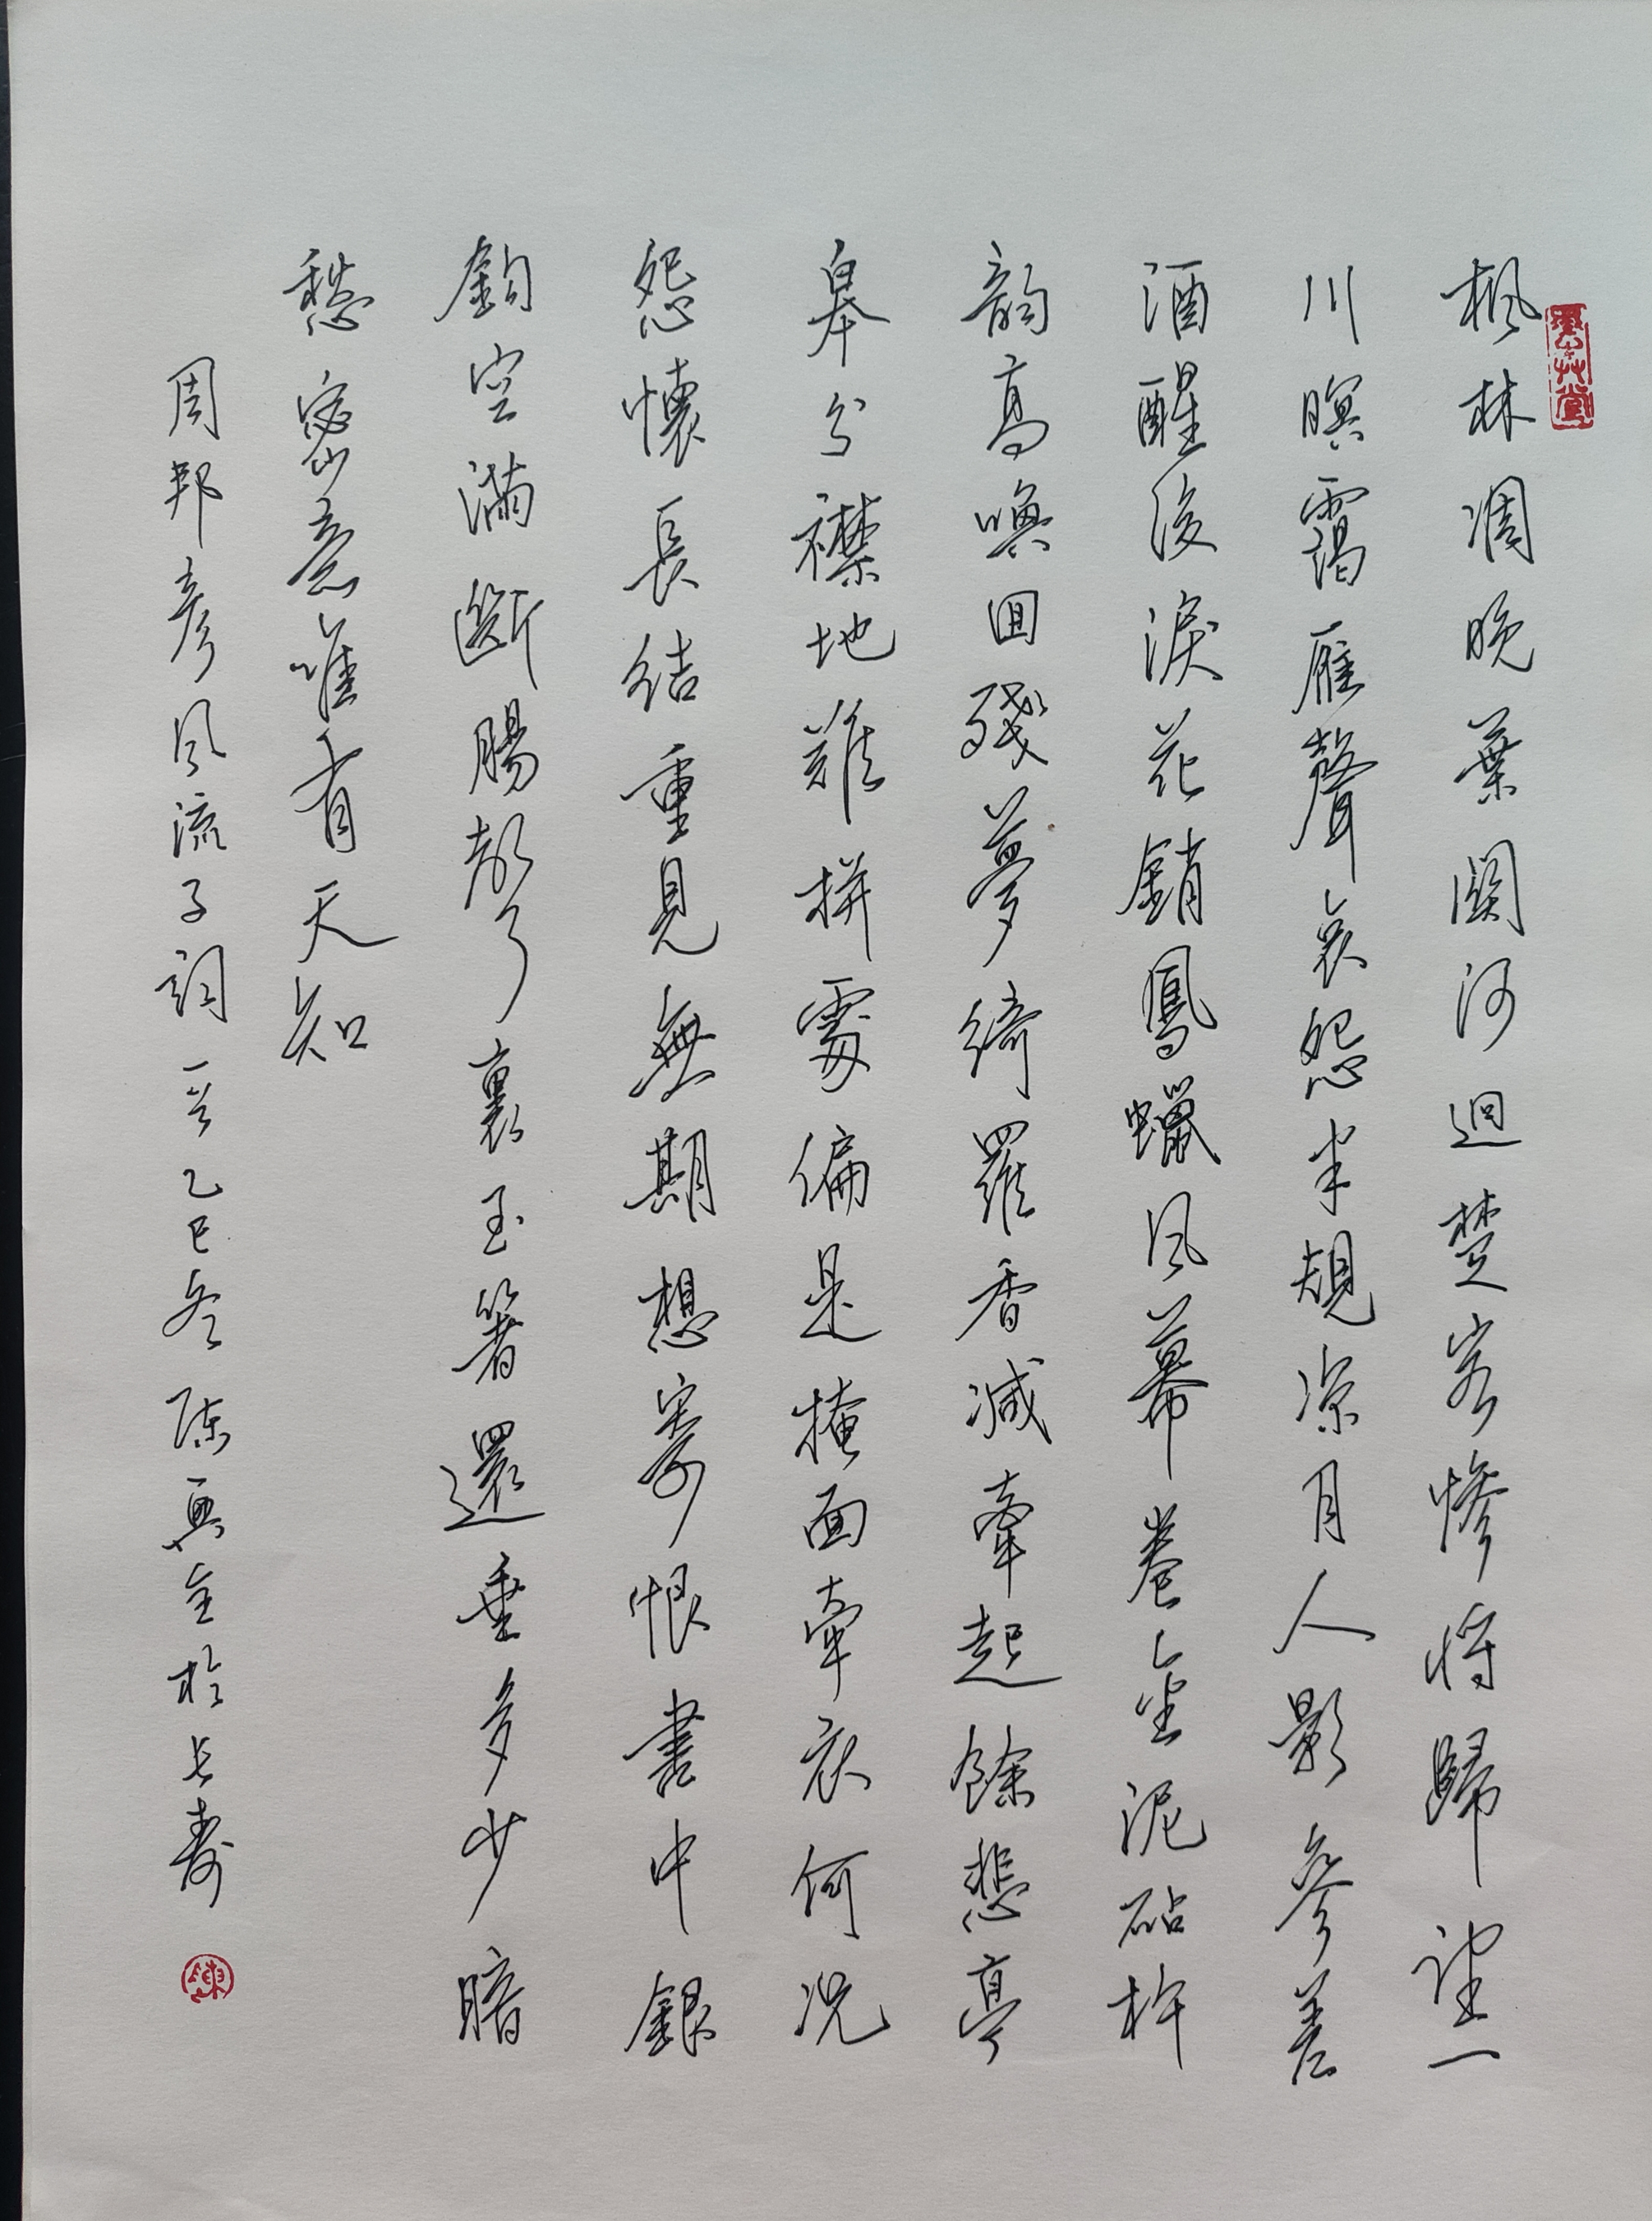 楓林凋晚葉關河迥楚客慘將歸望一
川暝靄雁聲哀怨半規涼月人影參差
酒醒後淚花銷鳳蠟风幕卷金泥砧杵
韵高喚回殘夢綺羅香減牽起餘悲亭
皋分襟地難拼處偏是掩面牽衣何况
怨懷長結重見無期想寄恨書中銀
鈎空滿斷腸聲裏玉箸還垂多少暗
愁密意唯有天知
周邦彥风流子詞一首乙巳冬陈興全於长寿